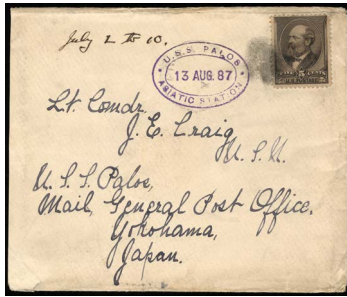 July 2 to 10.
U.S.S. PALOS
13 AUG. 87
ASIATIC STATION
5 CENTS
Lt. Comdr.
J. E. Craig,
U.S.N.
U.S.S Palos,
Mail, General Post Office.
Yokohama,
Japan.